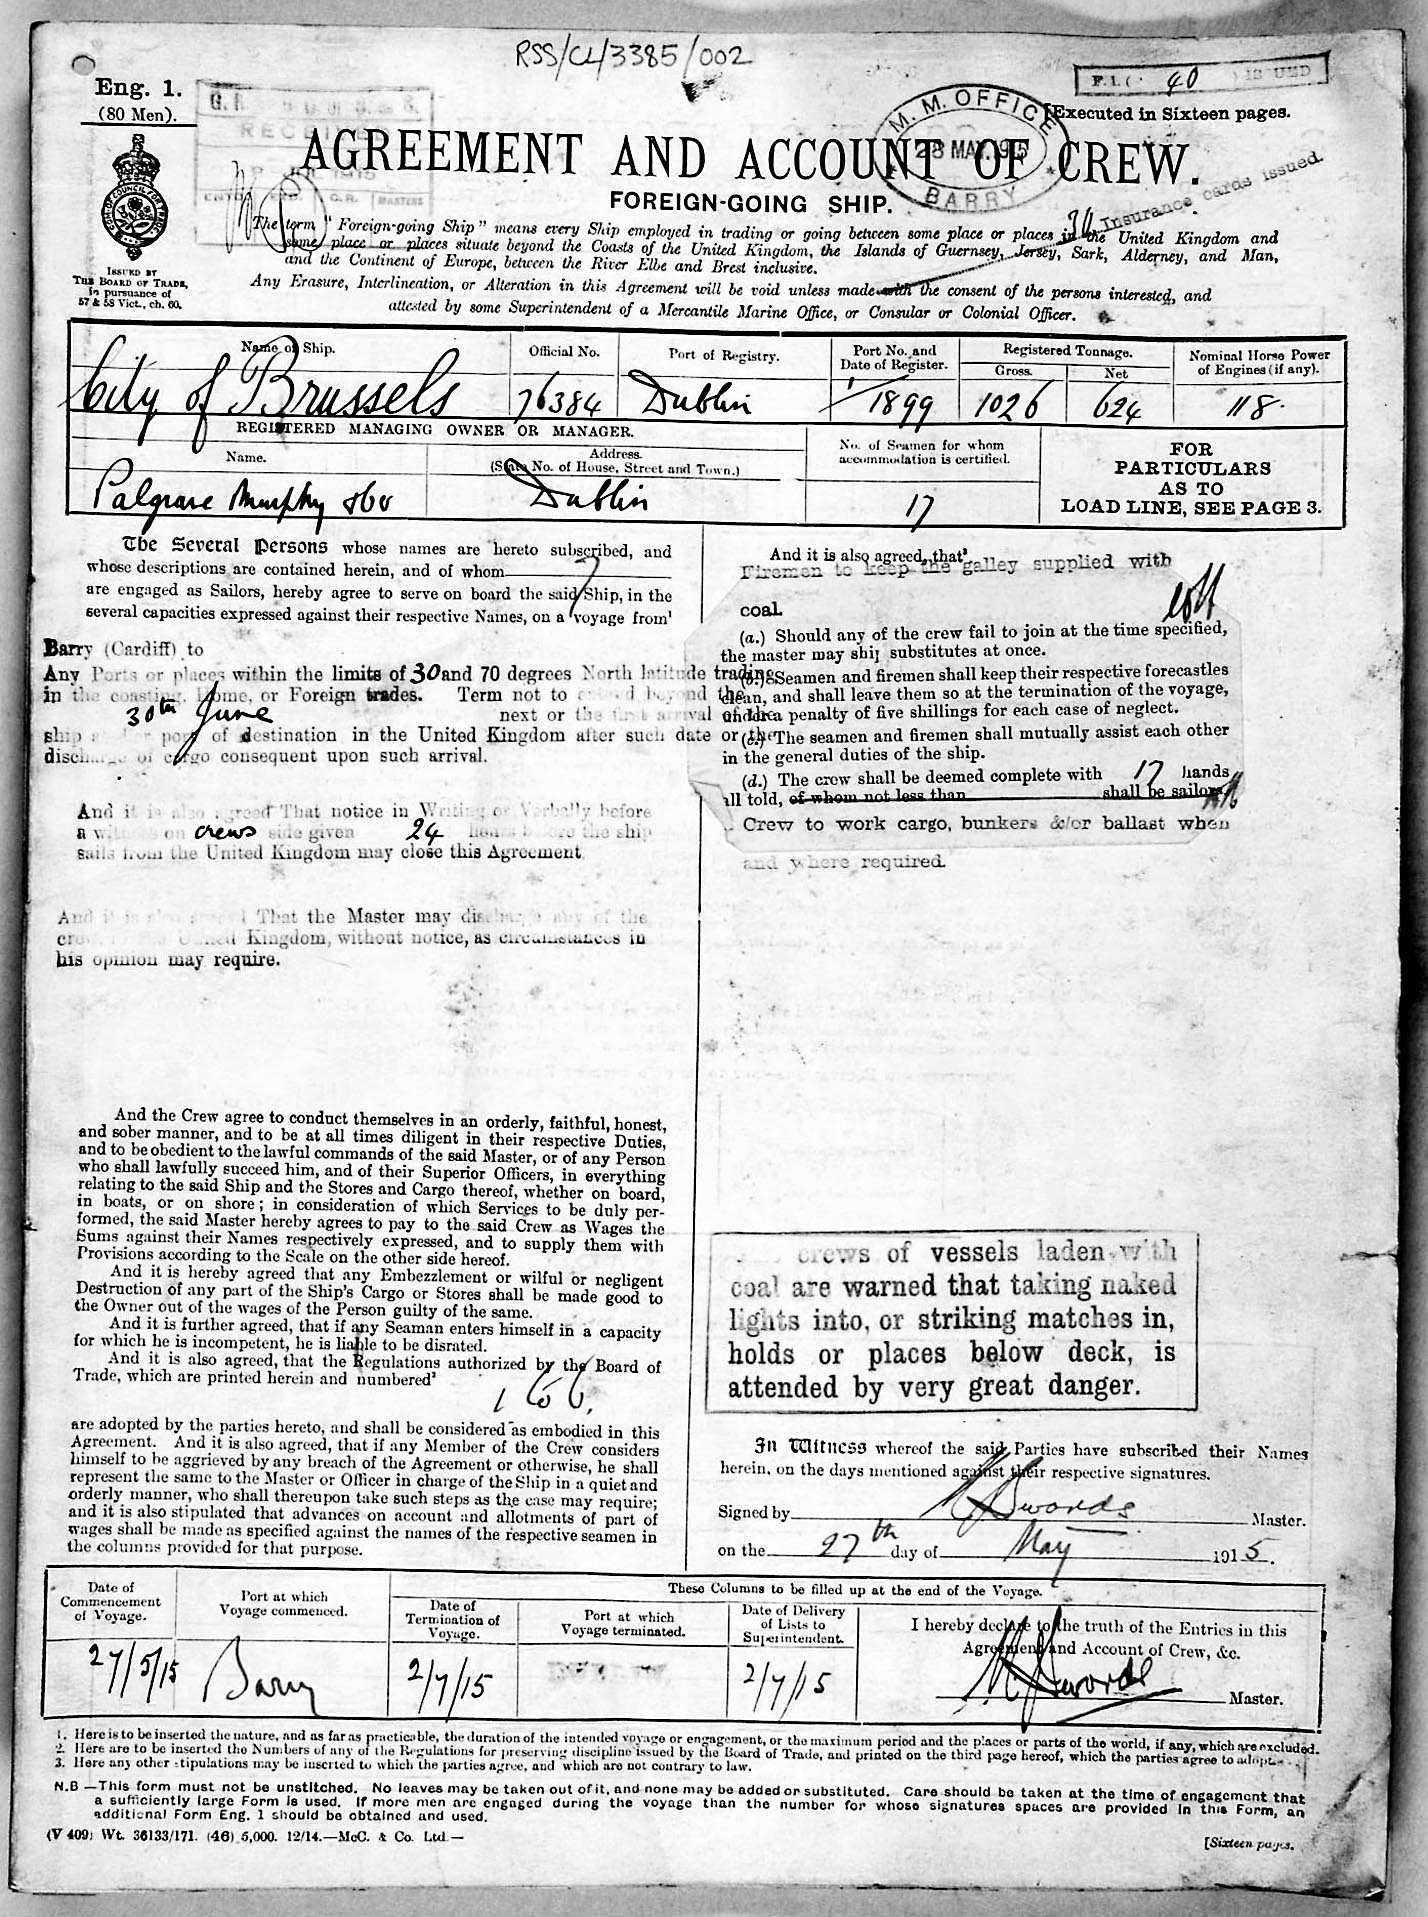 RSS/CL/3385/002
Eng. 1.
(80 Men).
40
[Executed in Sixteen pages.
M. M. OFFICE
28 MAY. 1915
BARRY
AGREEMENT AND ACCOUNT OF CREW.
FOREIGN-GOING SHIP.
34 Insurance cards issued.
ISSUED BY
THE BOARD OF TRADE,
in pursuance of
57 & 58 Vict., ch. 60.
The term "Foreign-going Ship" means every Ship employed in trading or going between some place or places in the United Kingdom and
some place or places situate beyond the Coasts of the United Kingdom, the Islands of Guernsey, Jersey, Sark, Alderney, and Man,
and the Continent of Europe, between the River Elbe and Brest inclusive.
Any Erasure, Interlineation, or Alteration in this Agreement will be void unless made with the consent of the persons interested, and
attested by some Superintendent of a Mercantile Marine Office, or Consular or Colonial Officer.
Name of Ship. Official No. Port of Registry. Port No. and Date of Register. Registered Tonnage. Gross. Net Nominal Horse Power of Engines (if any).
City of Brussels 76384 Dublin 1/1899 1026 624 118.
REGISTERED MANAGING OWNER OR MANAGER.
Name. Address. (State No. of House, Street and Town.) No. of Seamen for whom accommodation is certified.
Palgrave Murphy & Co Dublin 17
FOR
PARTICULARS
AS TO
LOAD LINE, SEE PAGE 3.
The Several Persons whose names are hereto subscribed, and
whose descriptions are contained herein, and of whom 7
are engaged as Sailors, hereby agree to serve on board the said Ship, in the
several capacities expressed against their respective Names, on a voyage from¹
Barry (Cardiff) to
Any Ports or places within the limits of 30 and 70 degrees North latitude trading
in the coasting, Home, or Foreign trades. Term not to extend beyond the
30th June next or the first arrival of the
ship at her port of destination in the United Kingdom after such date or the
discharge of cargo consequent upon such arrival.
And it is also agreed That notice in Writing or Verbally before
a witness on crews side given 24 hours before the ship
sails from the United Kingdom may close this Agreement.
And it is also agreed That the Master may discharge any of the
crew in the United Kingdom, without notice, as circumstances in
his opinion may require.
And the Crew agree to conduct themselves in an orderly, faithful, honest,
and sober manner, and to be at all times diligent in their respective Duties,
and to be obedient to the lawful commands of the said Master, or of any Person
who shall lawfully succeed him, and of their Superior Officers, in everything
relating to the said Ship and the Stores and Cargo thereof, whether on board,
in boats, or on shore; in consideration of which Services to be duly per-
formed, the said Master hereby agrees to pay to the said Crew as Wages the
Sums against their Names respectively expressed, and to supply them with
Provisions according to the Scale on the other side hereof.
And it is hereby agreed that any Embezzlement or wilful or negligent
Destruction of any part of the Ship's Cargo or Stores shall be made good to
the Owner out of the wages of the Person guilty of the same.
And it is further agreed, that if any Seaman enters himself in a capacity
for which he is incompetent, he is liable to be disrated.
And it is also agreed, that the Regulations authorized by the Board of
Trade, which are printed herein and numbered²
1 to 6.
are adopted by the parties hereto, and shall be considered as embodied in this
Agreement. And it is also agreed, that if any Member of the Crew considers
himself to be aggrieved by any breach of the Agreement or otherwise, he shall
represent the same to the Master or Officer in charge of the Ship in a quiet and
orderly manner, who shall thereupon take such steps as the case may require;
and it is also stipulated that advances on account and allotments of part of
wages shall be made as specified against the names of the respective seamen in
the columns provided for that purpose.
And it is also agreed, that³
Firemen to keep the galley supplied with
coal.
(a.) Should any of the crew fail to join at the time specified,
the master may ship substitutes at once.
(b.) Seamen and firemen shall keep their respective forecastles
clean, and shall leave them so at the termination of the voyage,
under a penalty of five shillings for each case of neglect.
(c.) The seamen and firemen shall mutually assist each other
in the general duties of the ship.
(d.) The crew shall be deemed complete with 17 hands
all told, of whom not less than shall be sailors.
Crew to work cargo, bunkers &/or ballast when
and where required.
crews of vessels laden with
coal are warned that taking naked
lights into, or striking matches in,
holds or places below deck, is
attended by very great danger.
In Witness whereof the said Parties have subscribed their Names
herein, on the days mentioned against their respective signatures.
Signed by Swords Master.
on the 27th day of May 1915.
Date of Commencement of Voyage. Port at which Voyage commenced. These Columns to be filled up at the end of the Voyage.
Date of Termination of Voyage. Port at which Voyage terminated. Date of Delivery of Lists to Superintendent. I hereby declare to the truth of the Entries in this Agreement and Account of Crew, &c.
27/5/15 Barry 2/7/15 2/7/15 Swords Master.
1. Here is to be inserted the nature, and as far as practicable, the duration of the intended voyage or engagement, or the maximum period and the places or parts of the world, if any, which are excluded.
2. Here are to be inserted the Numbers of any of the Regulations for preserving discipline issued by the Board of Trade, and printed on the third page hereof, which the parties agree to adopt.
3. Here any other stipulations may be inserted to which the parties agree, and which are not contrary to law.
N.B—This form must not be unstitched. No leaves may be taken out of it, and none may be added or substituted. Care should be taken at the time of engagement that
a sufficiently large Form is used. If more men are engaged during the voyage than the number for whose signatures spaces are provided in this Form, an
additional Form Eng. 1 should be obtained and used.
(V 409) Wt. 36133/171. (46) 5,000. 12/14.—McC. & Co. Ltd.—
[Sixteen pages.